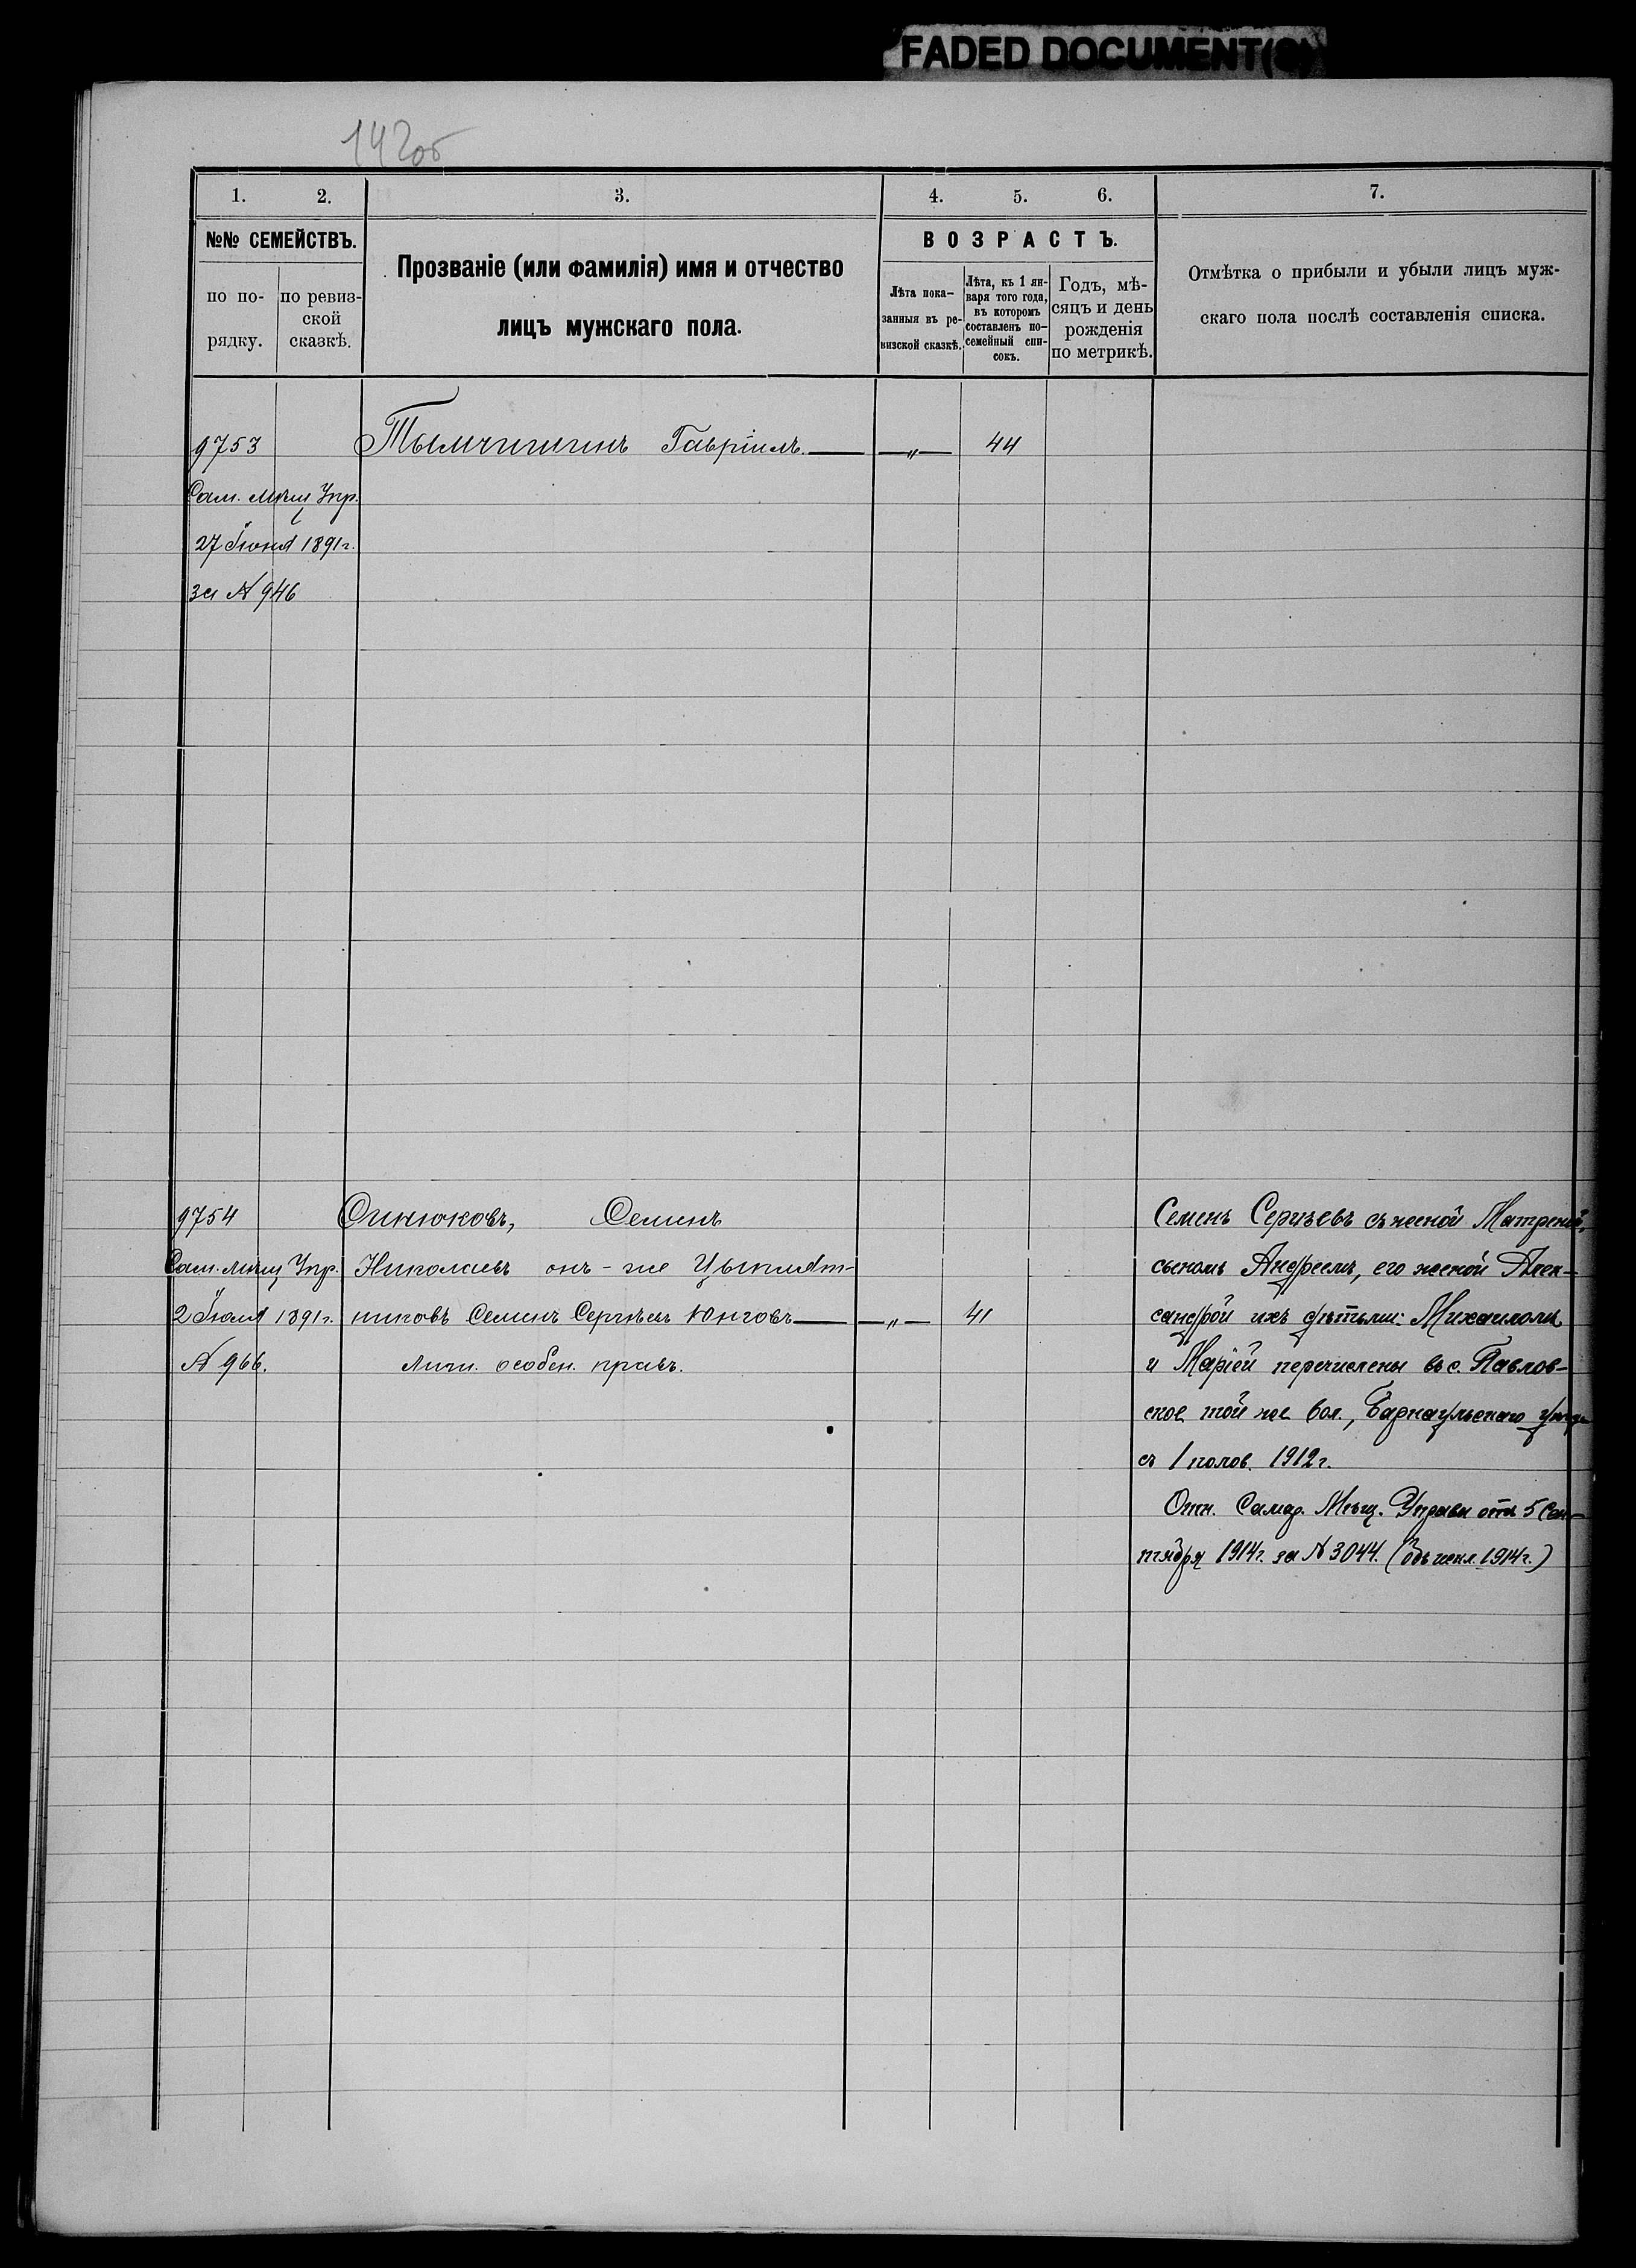 FADED DOCUMENT(S)
142об
1. 2. 3. 4. 5. 6. 7.
№№ СЕМЕЙСТВЪ.
по по-
рядку.
по ревиз-
ской
сказкѣ.
Прозваніе (или фамилія) имя и отчество
лицъ мужскаго пола.
ВОЗРАСТЪ.
Лѣта пока-
занныя въ ре-
визской сказкѣ.
Лѣта, къ 1 ян-
варя того года,
въ которомъ
составленъ по-
семейный спи-
сокъ.
Годъ, мѣ-
сяцъ и день
рожденія
по метрикѣ.
Отмѣтка о прибыли и убыли лицъ муж-
скаго пола послѣ составленія списка.
9753 Гавріилъ — „ — 44
Сам. мѣщ Упр.
27 Іюня 1891 г.
за № 946
9754
Сам. мѣщ Упр.
2 Іюля 1891 г.
№ 966.
Синюковъ, Семенъ
Николаевъ онъ-же
Семенъ Сергѣевъ — „ — 41
лич. особен. правъ.
Семенъ Сергѣевъ съ женой Матреной,
сыномъ Андреемъ, его женой Алек-
сандрой ихъ дѣтьми: Михаиломъ
и Маріей перечислены въ с. Павлов-
ское той же вол., Барнаульскаго уѣзда
съ 1 полов. 1912 г.
Отн. Самар. Мѣщ. Управы отъ 5 Сен-
тября 1914 г. за № 3044. 1914 г.)